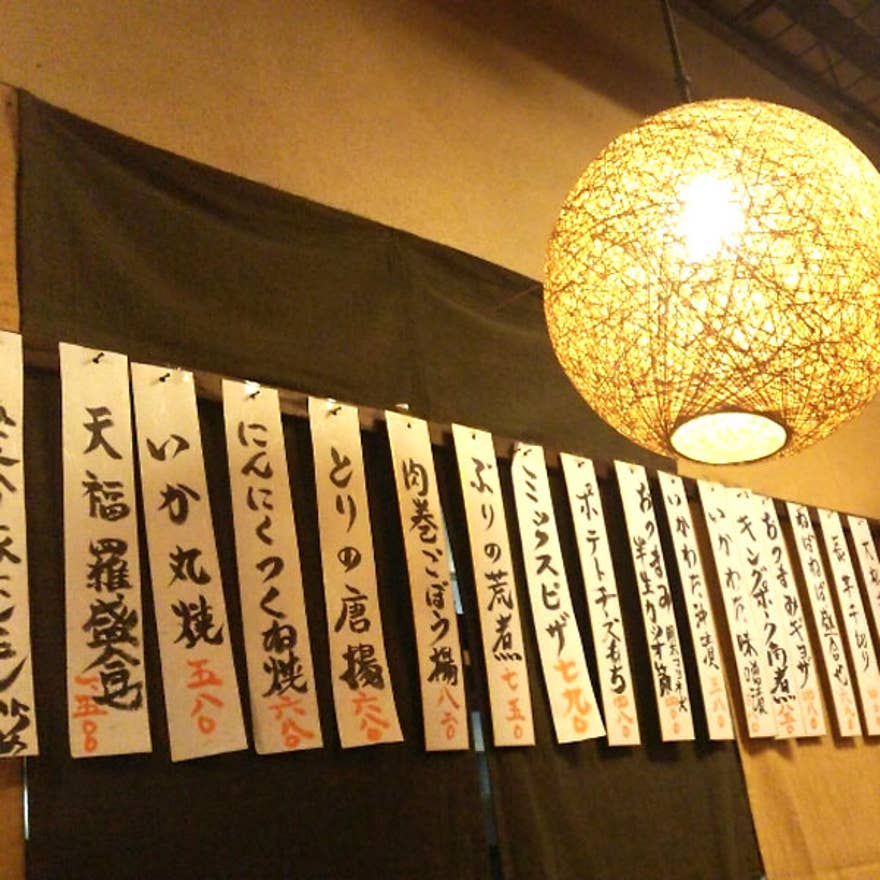 天福羅盛合
一五〇〇
いか丸焼
五八〇
にんにくつくね焼
六八〇
とりの唐揚
六八〇
肉巻ごぼう揚
八二〇
ぶりの荒煮
七五〇
ミックスピザ
七九〇
ポテトチーズもち
四八〇
おつまみ
半生カツオ節
いかわた沖漬
三八〇
いかわた味噌漬
キングポーク角煮
おつまみギョザ
四八〇
ねばねば盛合せ
長芋千切り